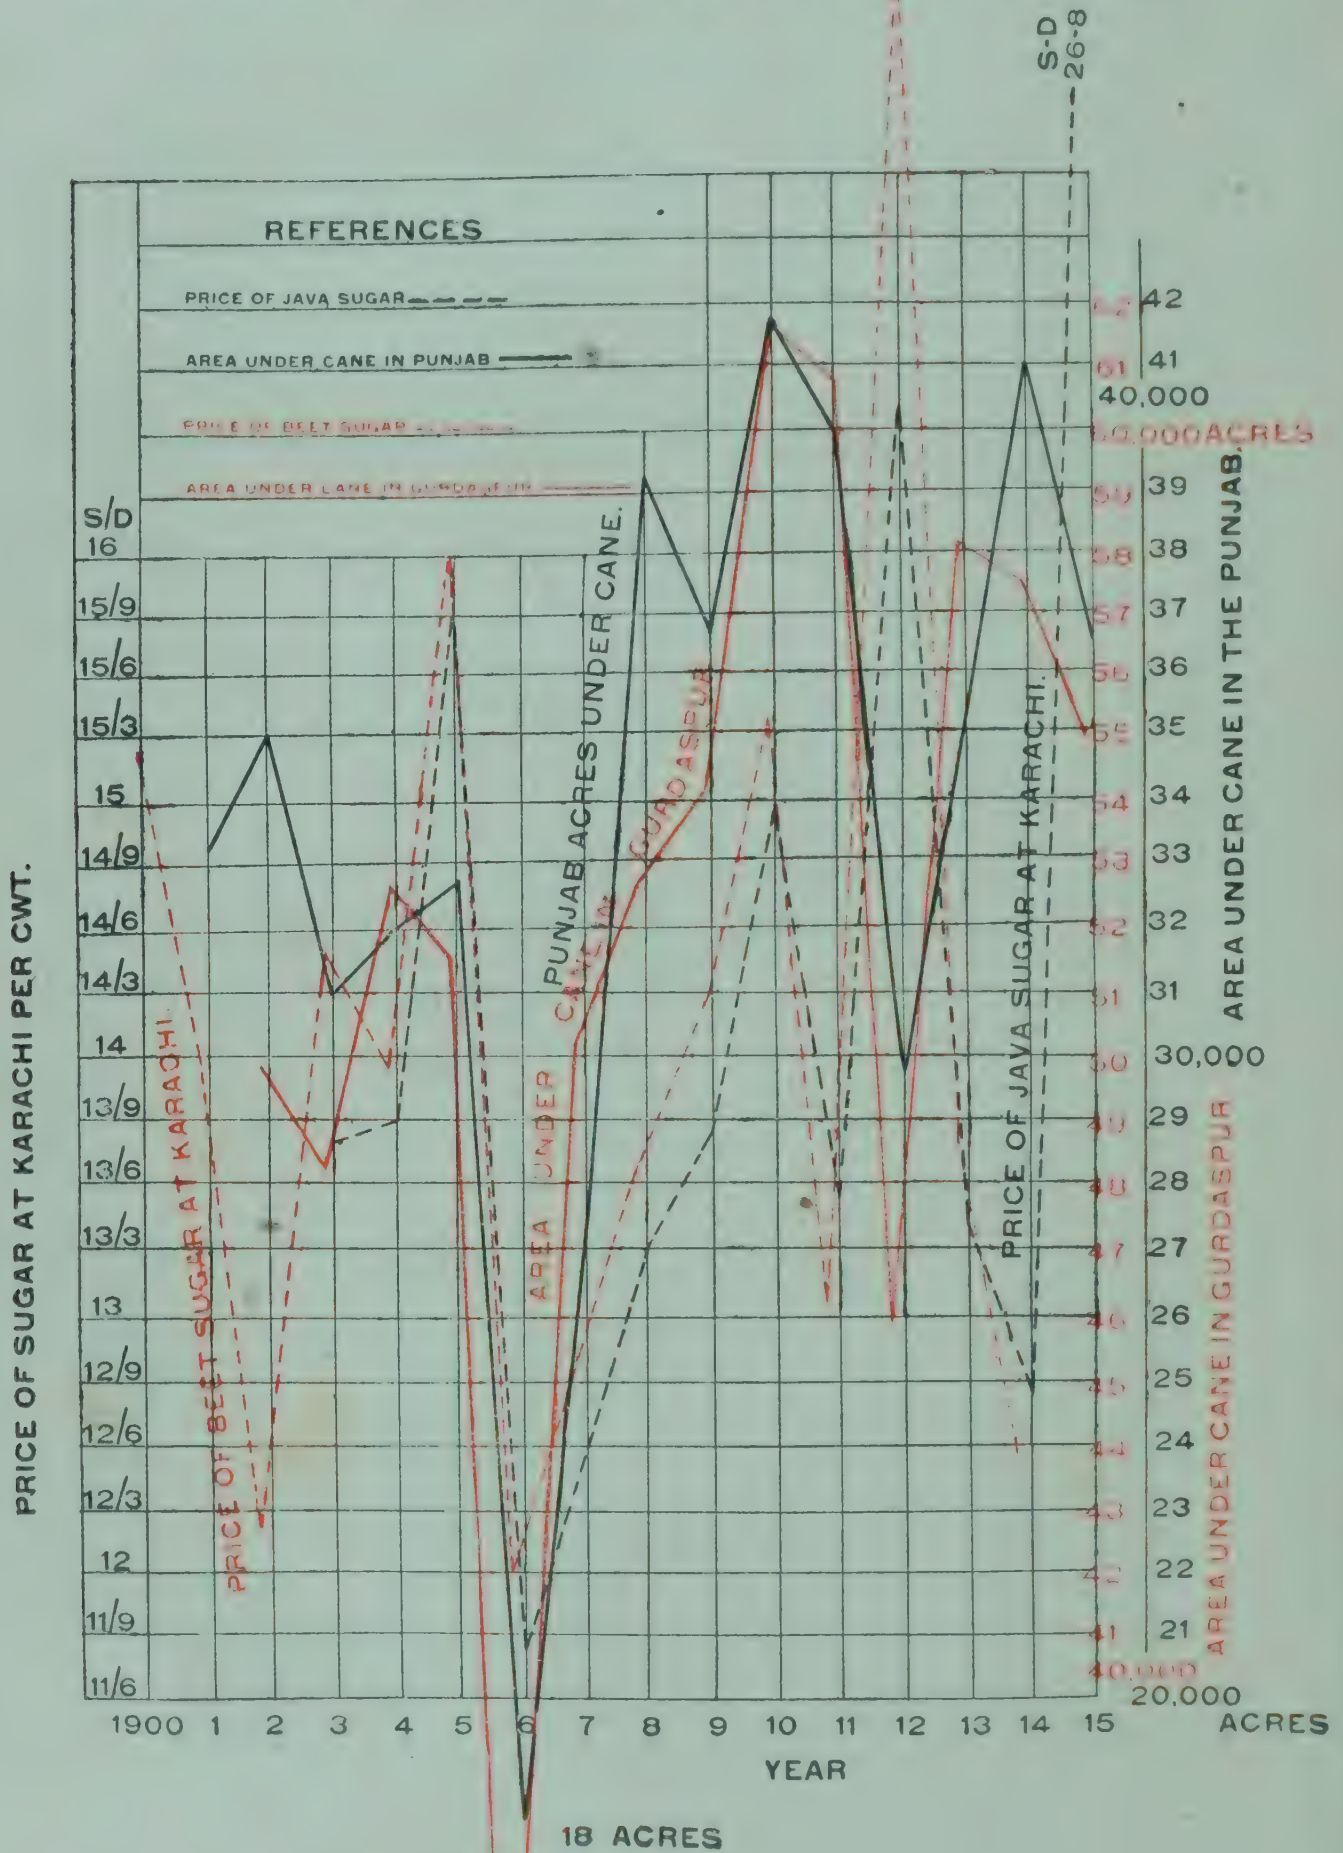 S-D
26-8
REFERENCES
PRICE OF JAVA SUGAR
AREA UNDER CANE IN PUNJAB
PRICE OF BEET SUGAR
AREA UNDER CANE IN GURDASPUR
PRICE OF SUGAR AT KARACHI PER CWT.
S/D
16
15/9
15/6
15/3
15
14/9
14/6
14/3
14
13/9
13/6
13/3
13
12/9
12/6
12/3
12
11/9
11/6
PRICE OF BEET SUGAR AT KARACHI.
AREA UNDER CANE IN GURDASPUR
PUNJAB ACRES UNDER CANE.
PRICE OF JAVA SUGAR AT KARACHI.
62
61
60,000 ACRES
59
58
57
56
55
54
53
52
51
50
49
48
47
46
45
44
43
42
41
40,000
42
41
40,000
39
38
37
36
35
34
33
32
31
30,000
29
28
27
26
25
24
23
22
21
20,000
AREA UNDER CANE IN THE PUNJAB.
AREA UNDER CANE IN GURDASPUR
1900 1 2 3 4 5 6 7 8 9 10 11 12 13 14 15 ACRES
YEAR
18 ACRES